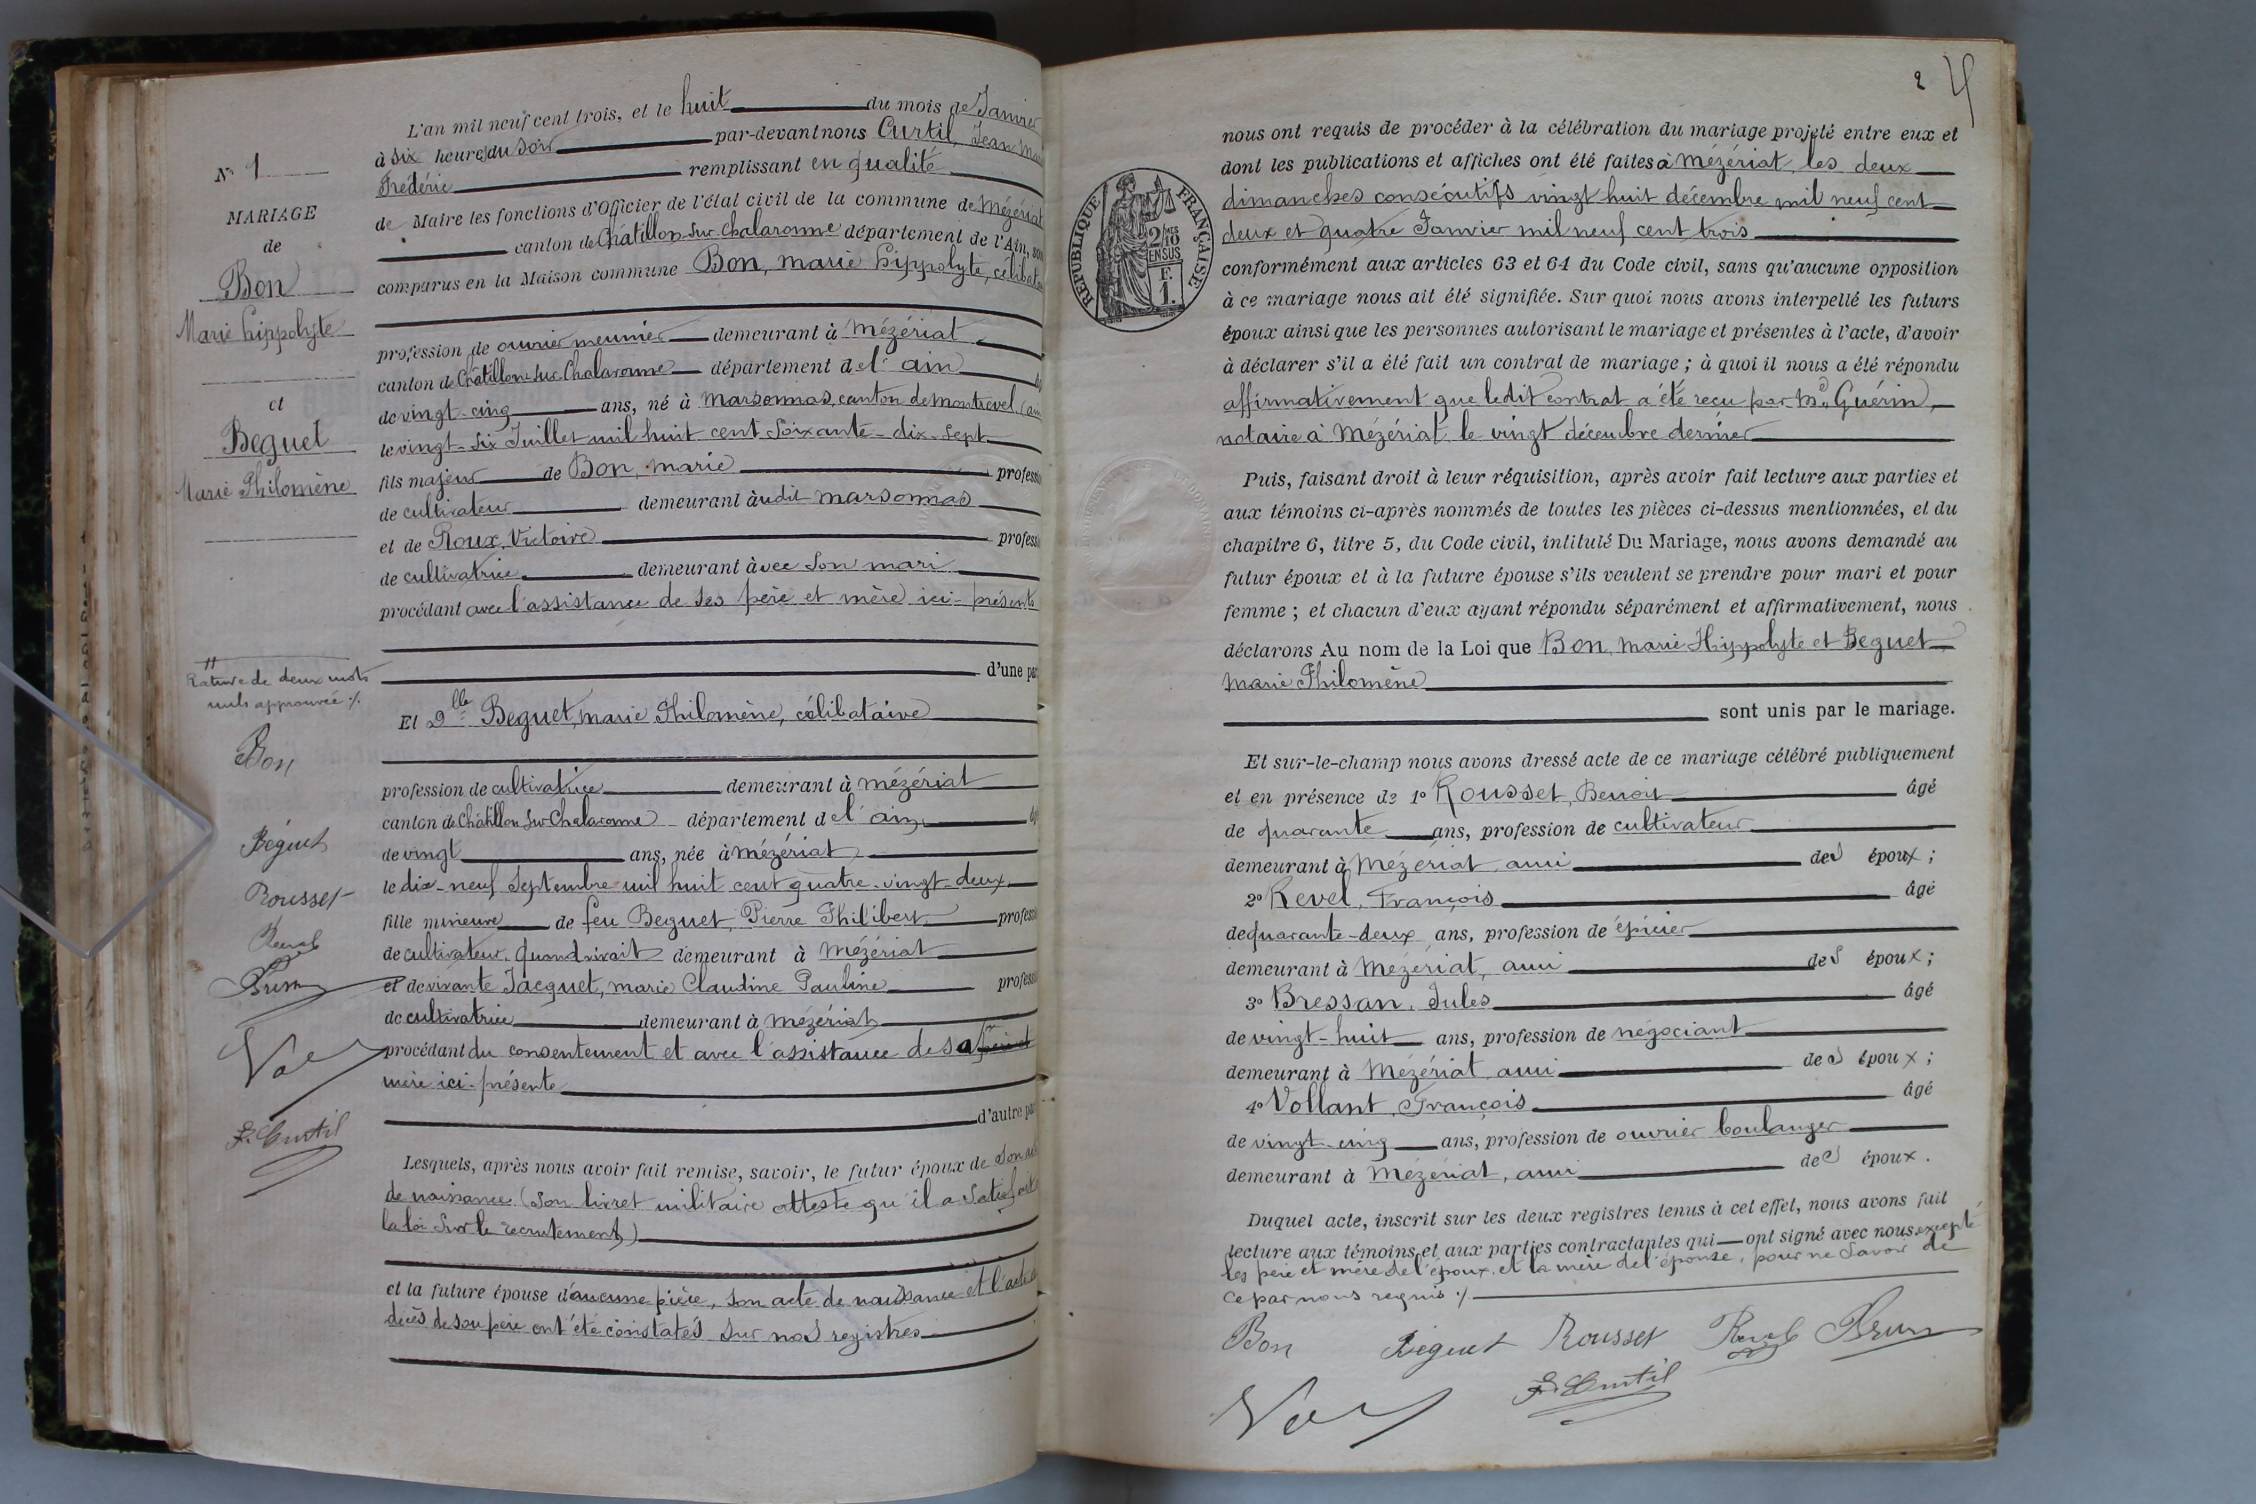 N° 1
MARIAGE
de
Bon
Marie hippolyte
et
Beguet
Marie Philomène
Rature de deux mots
nuls approuvée ./.
Bon
Béguet
Rousset
Revel
F. Curtil
L'an mil neuf cent trois, et le huit du mois de Janvier
à six heures du soir par-devant nous Curtil, Jean Marie
Frédéric remplissant en qualité
de Maire les fonctions d'Officier de l'état civil de la commune de Mézériat
canton de Châtillon sur Chalaronne département de l'Ain, sont
comparus en la Maison commune Bon, marie hippolyte, célibataire
profession de ouvrier meunier demeurant à Mézériat
canton de Châtillon sur Chalaronne département de l'ain
de vingt-cinq ans, né à Marsonnas, canton de Montrevel (ain
le vingt-six Juillet mil huit cent soixante-dix-sept
fils majeur de Bon, marie profession
de cultivateur demeurant audit marsonnas
et de Roux, Victoire profession
de cultivatrice demeurant avec son mari
procédant avec l'assistance de ses père et mère ici-présents
d'une part
Et Dlle Beguet, marie Philomène, célibataire
profession de cultivatrice demeurant à mézériat
canton de Châtillon sur Chalaronne département de l'ain, âgée
de vingt ans, née à mézériat
le dix-neuf septembre mil huit cent quatre-vingt-deux
fille mineure de feu Beguet, Pierre Philibert profession
de cultivateur, quand vivait demeurant à Mézériat
et de vivante Jacquet, marie Claudine Pauline profession
de cultivatrice demeurant à mézériat
procédant du consentement et avec l'assistance de sa père et
mère ici-présente
d'autre part
Lesquels, après nous avoir fait remise, savoir, le futur époux de son acte
de naissance (son livret militaire atteste qu'il a satisfait à
la loi sur le recrutement)
et la future épouse d'aucune pièce, son acte de naissance et l'acte de
décès de son père ont été constatés sur nos registres
2
RÉPUBLIQUE FRANÇAISE
2/10
EN SUS
F.
1.
nous ont requis de procéder à la célébration du mariage projeté entre eux et
dont les publications et affiches ont été faites à Mézériat, les deux
dimanches consécutifs vingt huit décembre mil neuf cent
deux et quatre Janvier mil neuf cent trois
conformément aux articles 63 et 64 du Code civil, sans qu'aucune opposition
à ce mariage nous ait été signifiée. Sur quoi nous avons interpellé les futurs
époux ainsi que les personnes autorisant le mariage et présentes à l'acte, d'avoir
à déclarer s'il a été fait un contrat de mariage ; à quoi il nous a été répondu
affirmativement que ledit contrat a été reçu par Me Guérin,
notaire à Mézériat, le vingt décembre dernier
Puis, faisant droit à leur réquisition, après avoir fait lecture aux parties et
aux témoins ci-après nommés de toutes les pièces ci-dessus mentionnées, et du
chapitre 6, titre 5, du Code civil, intitulé Du Mariage, nous avons demandé au
futur époux et à la future épouse s'ils veulent se prendre pour mari et pour
femme ; et chacun d'eux ayant répondu séparément et affirmativement, nous
déclarons Au nom de la Loi que Bon, marie Hippolyte et Beguet
marie Philomène
sont unis par le mariage.
Et sur-le-champ nous avons dressé acte de ce mariage célébré publiquement
et en présence de 1° Rousset, Benoit âgé
de quarante ans, profession de cultivateur
demeurant à Mézériat, ami des époux ;
2° Revel, François âgé
de quarante-deux ans, profession de épicier
demeurant à Mézériat, ami des époux ;
3° Bressan, Jules âgé
de vingt-huit ans, profession de négociant
demeurant à Mézériat, ami des époux ;
4° Vollant, François âgé
de vingt-cinq ans, profession de ouvrier boulanger
demeurant à Mézériat, ami des époux.
Duquel acte, inscrit sur les deux registres tenus à cet effet, nous avons fait
lecture aux témoins et aux parties contractantes qui ont signé avec nous, excepté
les père et mère de l'époux, et la mère de l'épouse, pour ne savoir de
ce par nous requis ./.
Bon Béguet Rousset Revel
F. Curtil